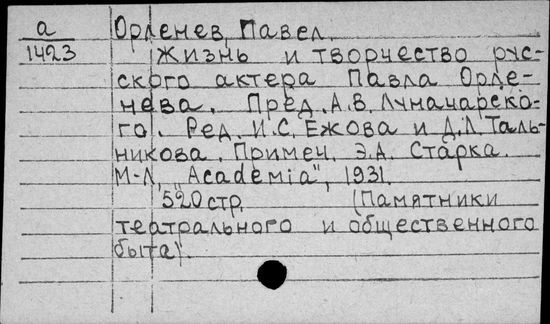 а
1423
Орленев, Павел.
Жизнь и творчество рус-
ского актера Павла Орле-
нева. Пред. А.В. Луначарско-
го. Ред. И.С. Ежова и Д.Л. Таль-
никова. Примеч. Э.А. Старка.
М-Л, "Academia", 1931.
520 стр. (Памятники
театрального и общественного
быта).